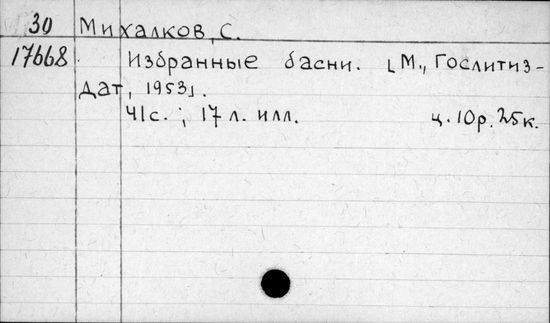 30 Михалков, С.
17668 Избранные басни. [М., Гослитиз-
дат, 1953].
41с.; 17 л. илл. ц. 10р. 25к.